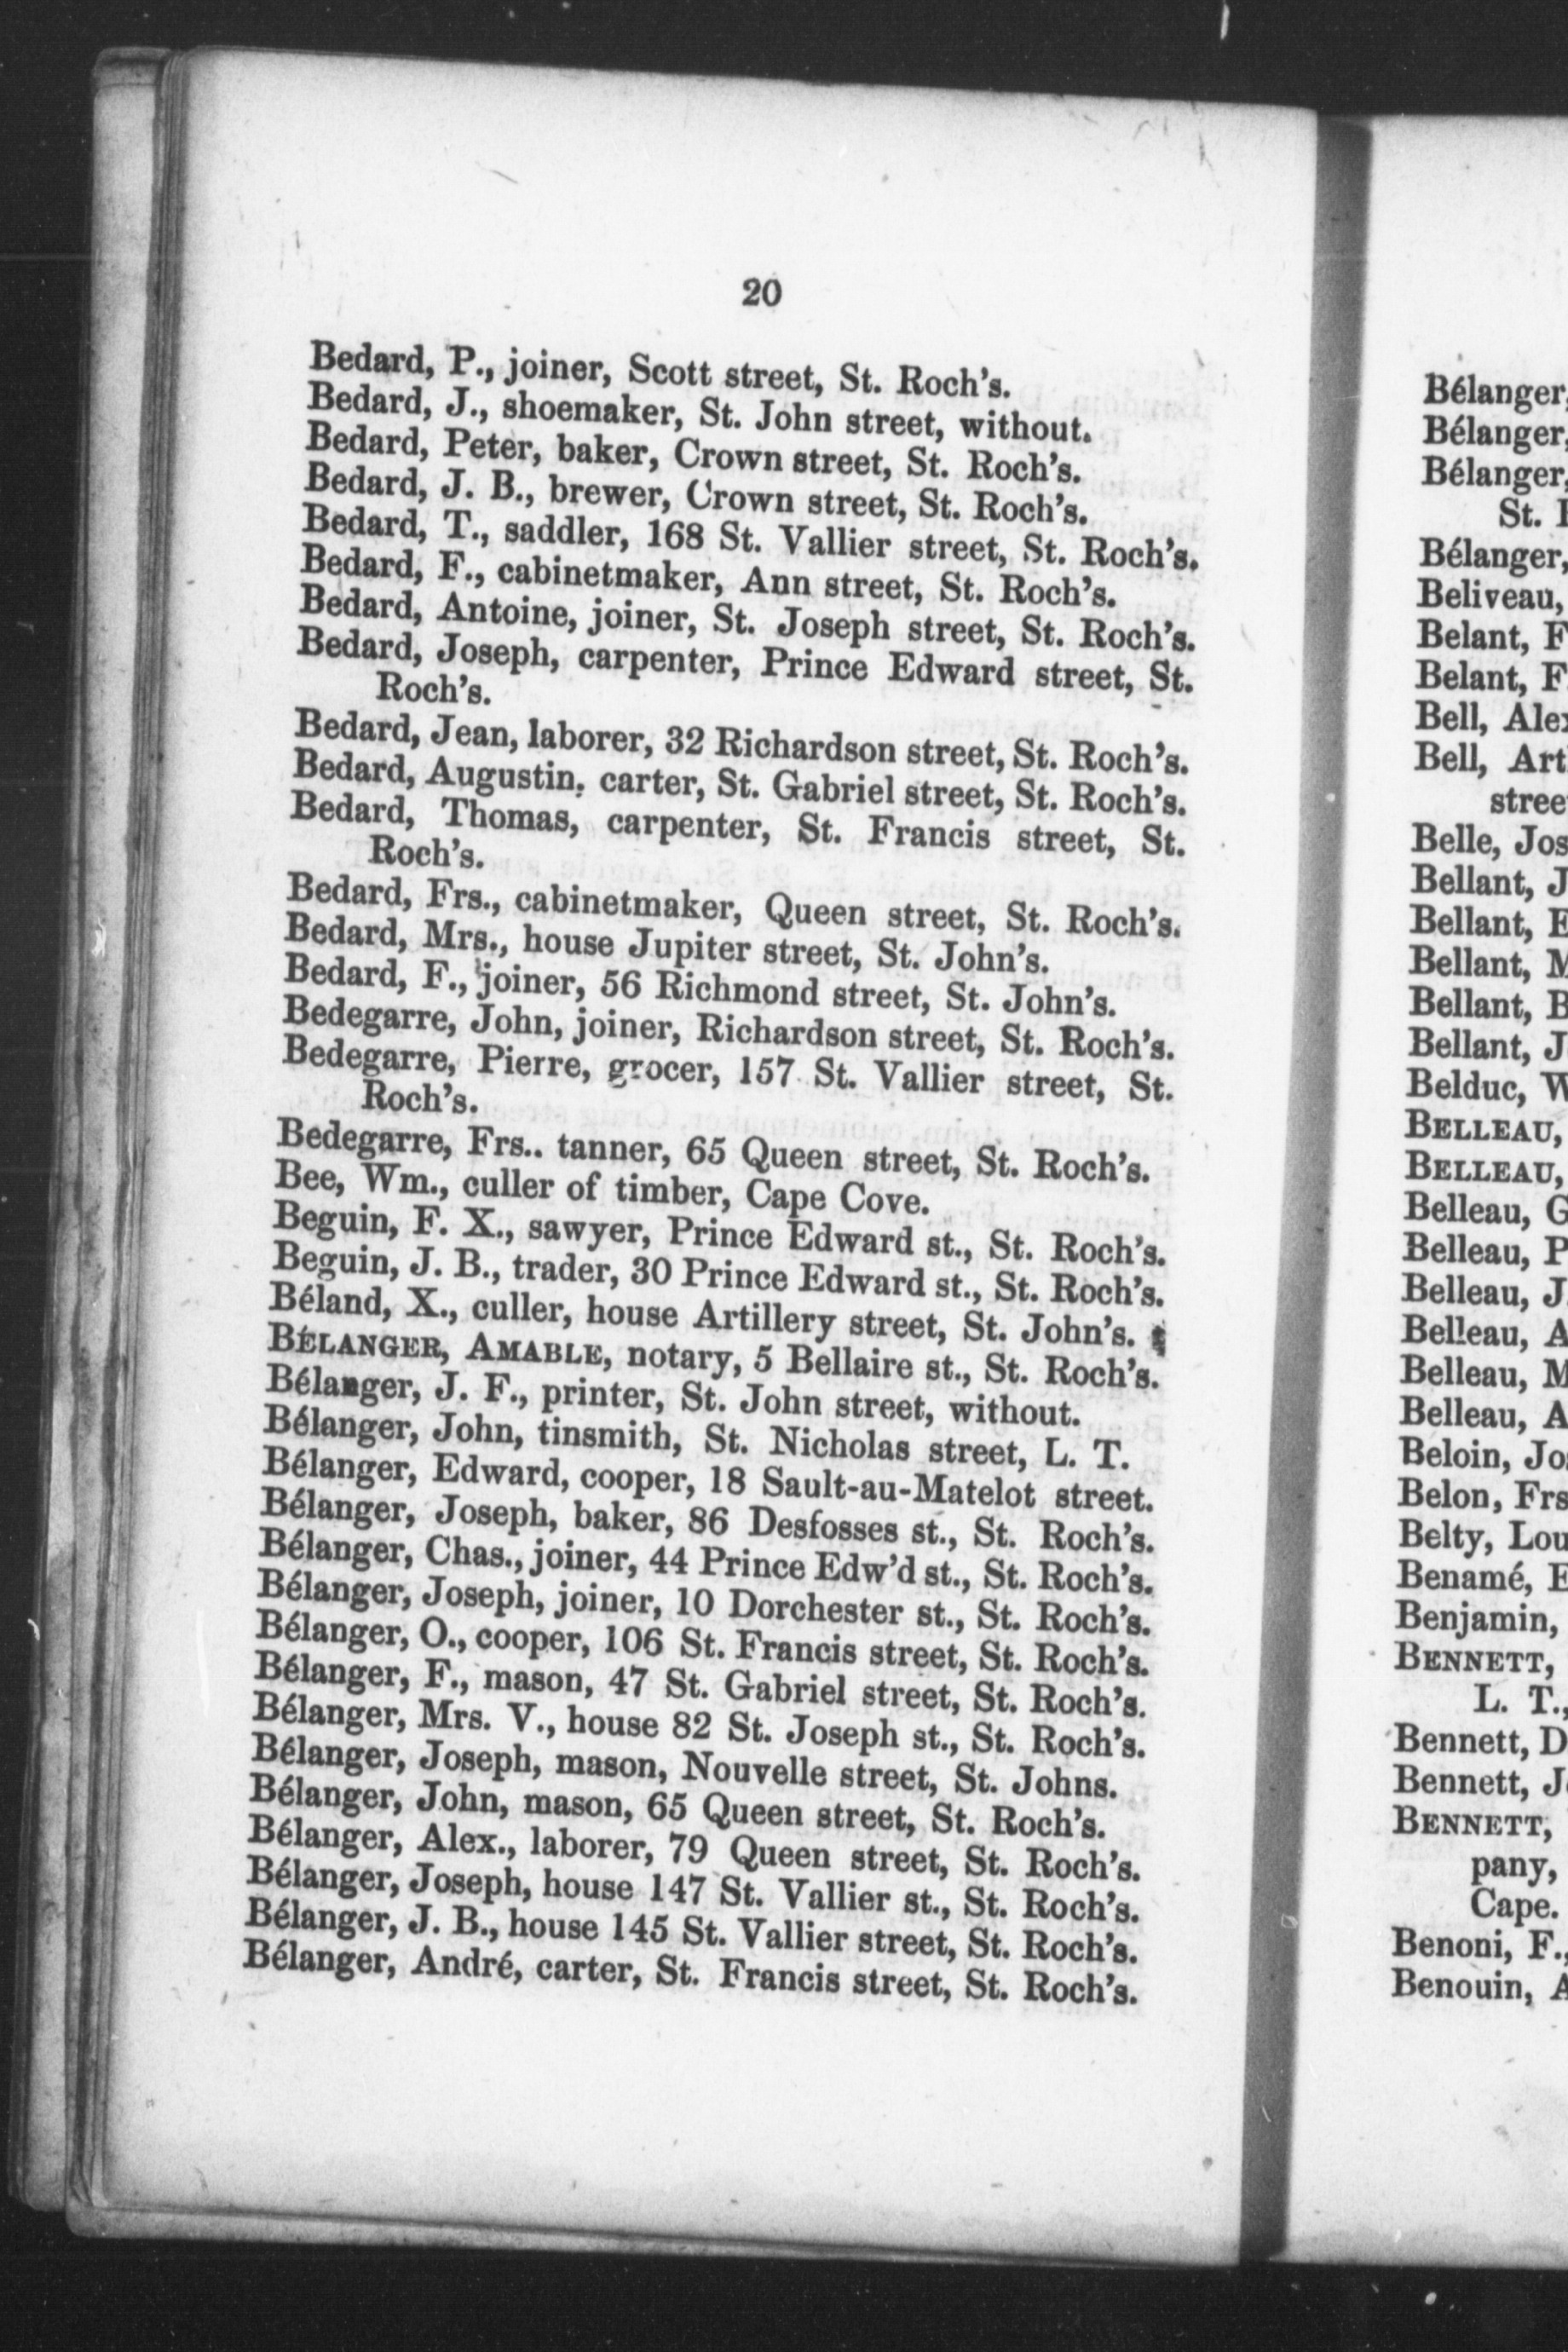 20
Bedard, P., joiner, Scott street, St. Roch's.
Bedard, J., shoemaker, St. John street, without.
Bedard, Peter, baker, Crown street, St. Roch's.
Bedard, J. B., brewer, Crown street, St. Roch's.
Bedard, T., saddler, 168 St. Vallier street, St. Roch's.
Bedard, F., cabinetmaker, Ann street, St. Roch's.
Bedard, Antoine, joiner, St. Joseph street, St. Roch's.
Bedard, Joseph, carpenter, Prince Edward street, St.
Roch's.
Bedard, Jean, laborer, 32 Richardson street, St. Roch's.
Bedard, Augustin, carter, St. Gabriel street, St. Roch's.
Bedard, Thomas, carpenter, St. Francis street, St.
Roch's.
Bedard, Frs., cabinetmaker, Queen street, St. Roch's.
Bedard, Mrs., house Jupiter street, St. John's.
Bedard, F., joiner, 56 Richmond street, St. John's.
Bedegarre, John, joiner, Richardson street, St. Roch's.
Bedegarre, Pierre, grocer, 157 St. Vallier street, St.
Roch's.
Bedegarre, Frs.. tanner, 65 Queen street, St. Roch's.
Bee, Wm., culler of timber, Cape Cove.
Beguin, F. X., sawyer, Prince Edward st., St. Roch's.
Beguin, J. B., trader, 30 Prince Edward st., St. Roch's.
Béland, X., culler, house Artillery street, St. John's.
BÉLANGER, AMABLE, notary, 5 Bellaire st., St. Roch's.
Bélanger, J. F., printer, St. John street, without.
Bélanger, John, tinsmith, St. Nicholas street, L. T.
Bélanger, Edward, cooper, 18 Sault-au-Matelot street.
Bélanger, Joseph, baker, 86 Desfosses st., St. Roch's.
Bélanger, Chas., joiner, 44 Prince Edw'd st., St. Roch's.
Bélanger, Joseph, joiner, 10 Dorchester st., St. Roch's.
Bélanger, O., cooper, 106 St. Francis street, St. Roch's.
Bélanger, F., mason, 47 St. Gabriel street, St. Roch's.
Bélanger, Mrs. V., house 82 St. Joseph st., St. Roch's.
Bélanger, Joseph, mason, Nouvelle street, St. Johns.
Bélanger, John, mason, 65 Queen street, St. Roch's.
Bélanger, Alex., laborer, 79 Queen street, St. Roch's.
Bélanger, Joseph, house 147 St. Vallier st., St. Roch's.
Bélanger, J. B., house 145 St. Vallier street, St. Roch's.
Bélanger, André, carter, St. Francis street, St. Roch's.
Bélanger,
Bélanger,
Bélanger,
St.
Bélanger,
Beliveau,
Belant, F
Belant, F
Bell, Alex
Bell, Art
stree
Belle, Jos
Bellant, J
Bellant, E
Bellant, M
Bellant, B
Bellant, J
Belduc, W
BELLEAU,
BELLEAU,
Belleau, G
Belleau, P
Belleau, J
Belleau, A
Belleau, M
Belleau, A
Beloin, Jos
Belon, Frs
Belty, Lou
Benamé, E
Benjamin,
BENNETT,
L. T.,
Bennett, D
Bennett, J
BENNETT,
pany,
Cape.
Benoni, F.,
Benouin, A